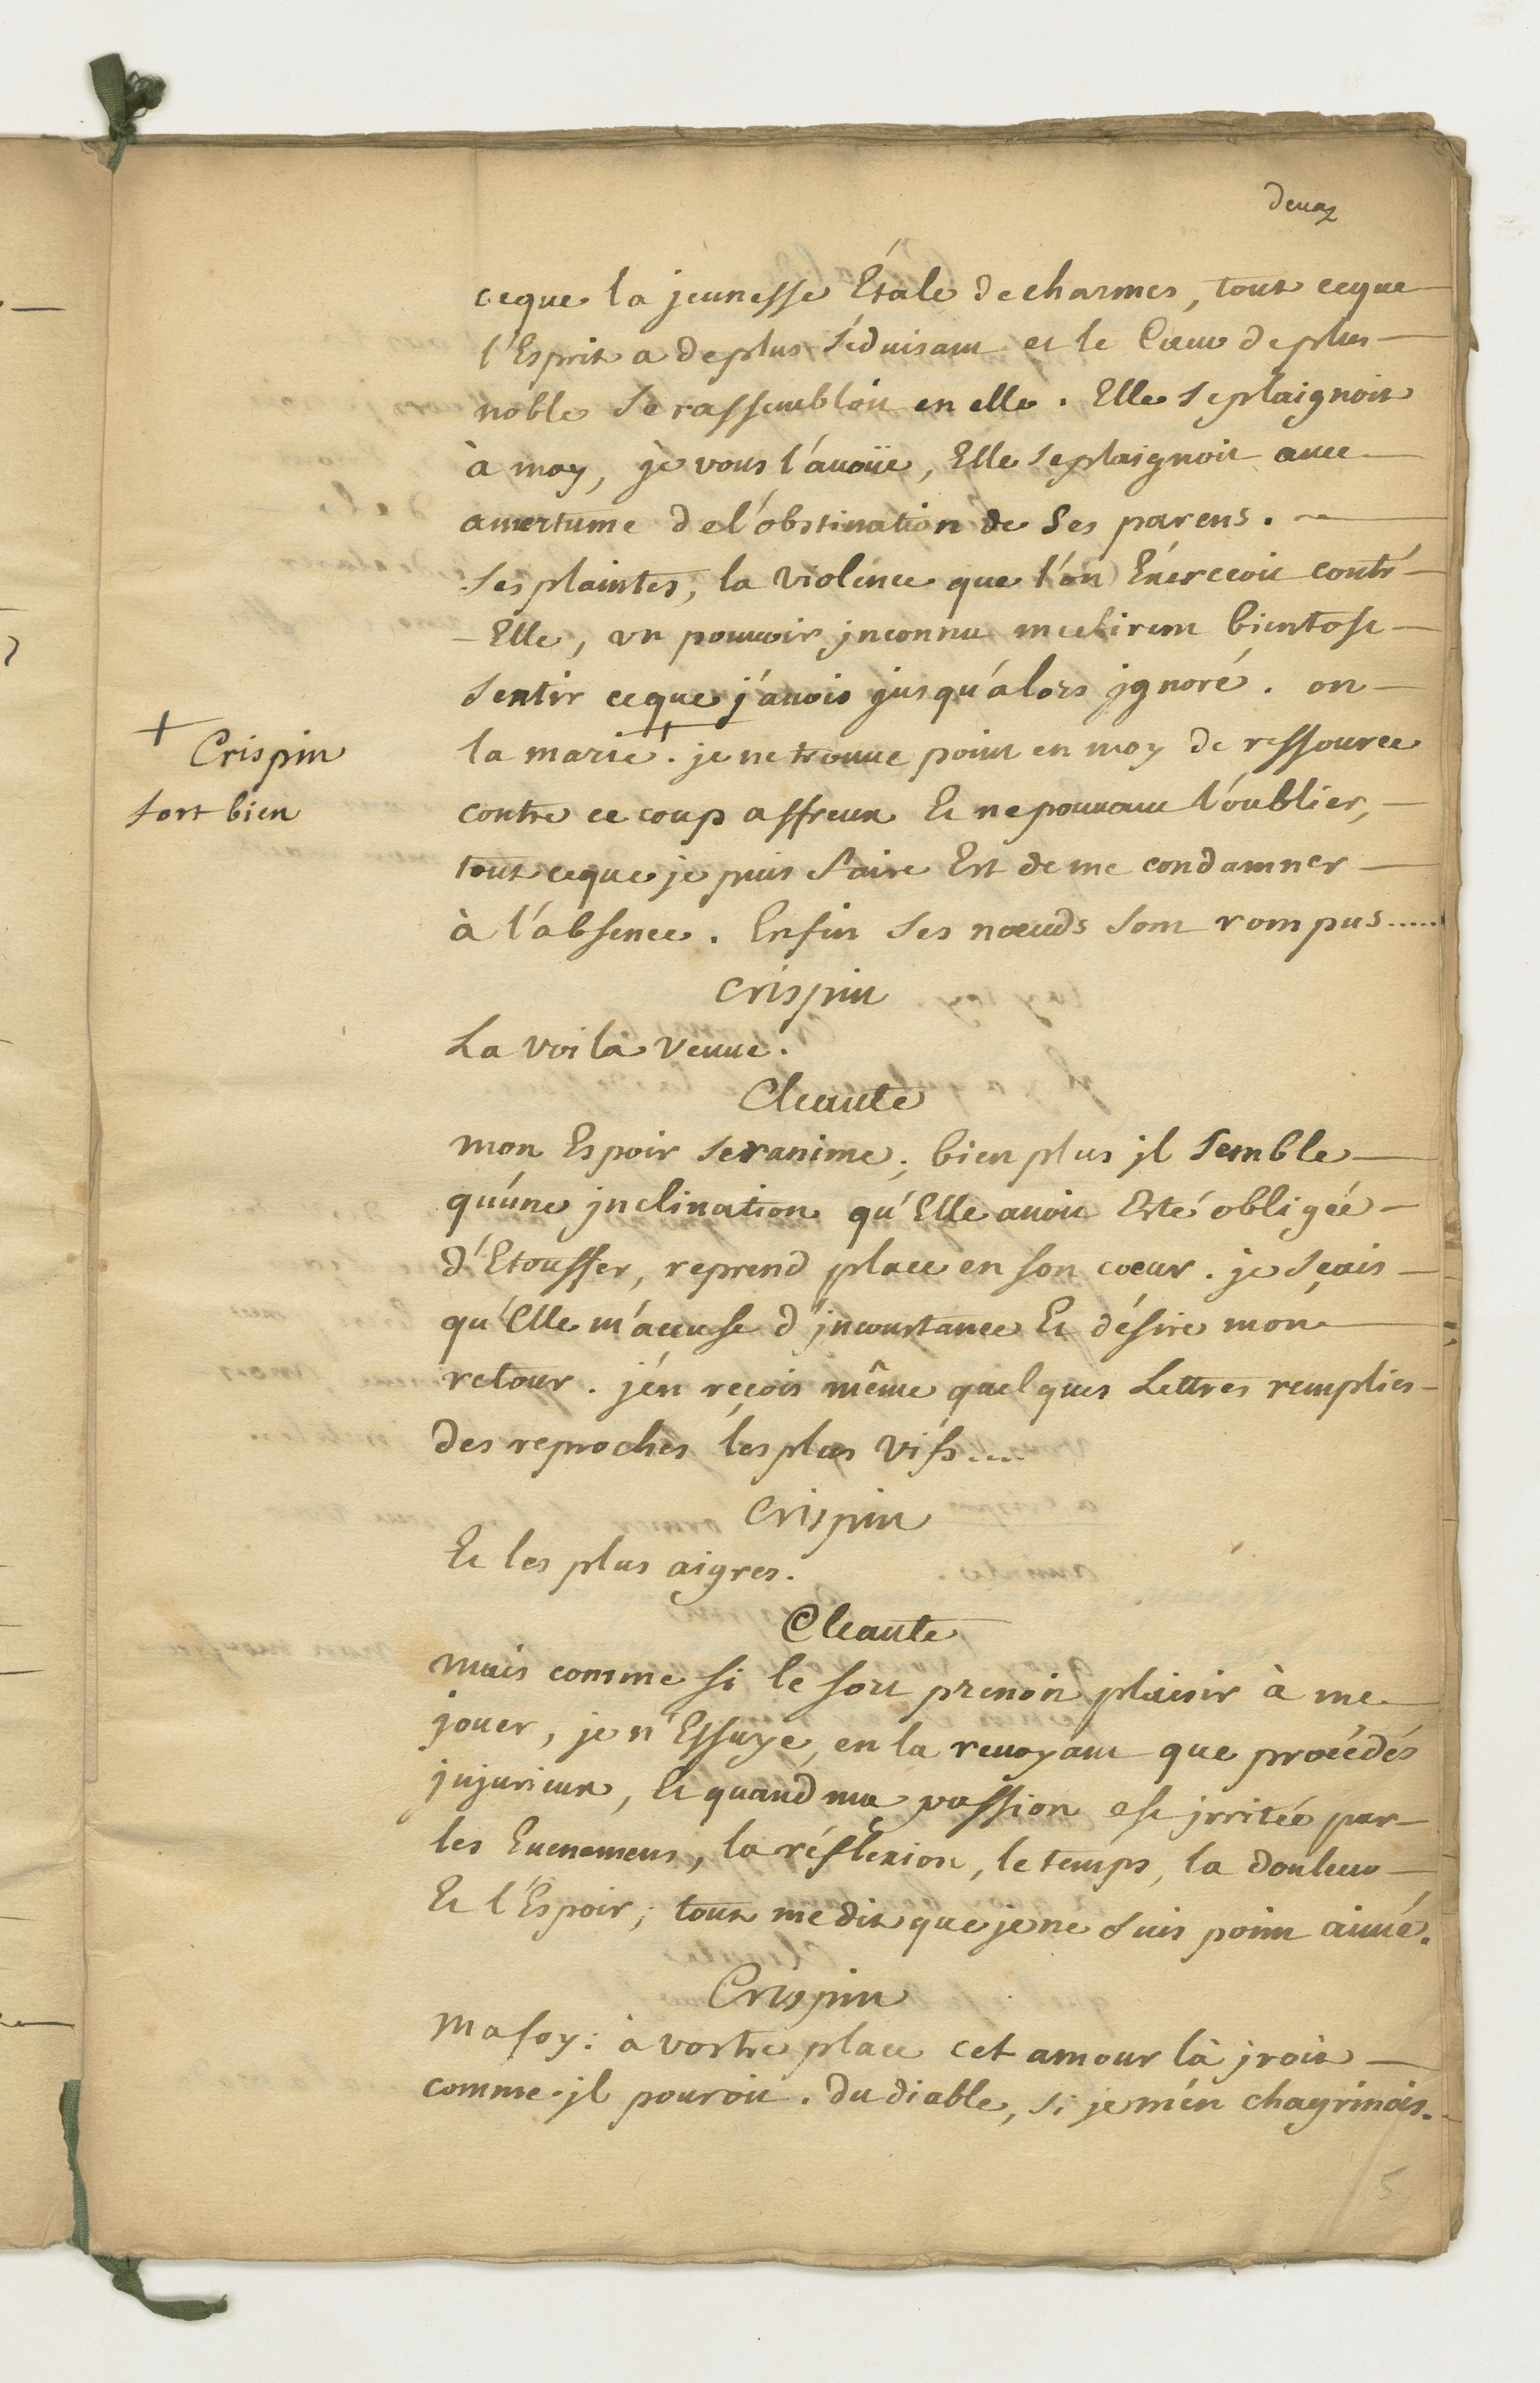 deux
ceque la jeunesse Étale de charmes, tout ceque
l'Esprit a deplus Séduisant et le Cœur deplus
noble Se rassembloit en elle. Elle Seplaignoit
à moy, je vous l'avoüe, Elle Seplaignoit avec
amertume del'obstination de Ses parens.
Ses plaintes, la violence que l'on Exerceoit contr'
-Elle, un pouvoir jnconnu mefirent bientost
Sentir ceque j'avois jusqu'alors jgnoré. on
la marie.+ je ne trouve point en moy de ressource
+ Crispin
fort bien
contre ce coup affreux Et nepouvant l'oublier,
tout ceque je puis faire Est de me condamner
à l'absence. Enfin Ses nœuds Sont rompus.....
Crispin
La voila veuve.
Cleante
mon Espoir Seranime; bien plus jl Semble
qu'une jnclination qu'Elle avoit Esté obligée
d'Etouffer, reprend place en son coeur. je Sçais
qu'Elle m'accuse d'jnconstance Et désire mon
retour. j'en reçois même quelques Lettres remplies
des reproches les plus vifs....
Crispin
Et les plus aigres.
Cleante
mais comme si le sort prenoit plaisir à me
jouer, je n'Essuye, en la revoyant que procédés
jnjurieux, Et quand ma passion est jrritée par
les Evenemens, la réflexion, le temps, la douleur
Et l'Espoir; tout me dit que je ne Suis point aimé.
Crispin
ma foy: à vostre place cet amour là jroit
comme jl pouroit. du diable, Si je m'en chagrinois.
5